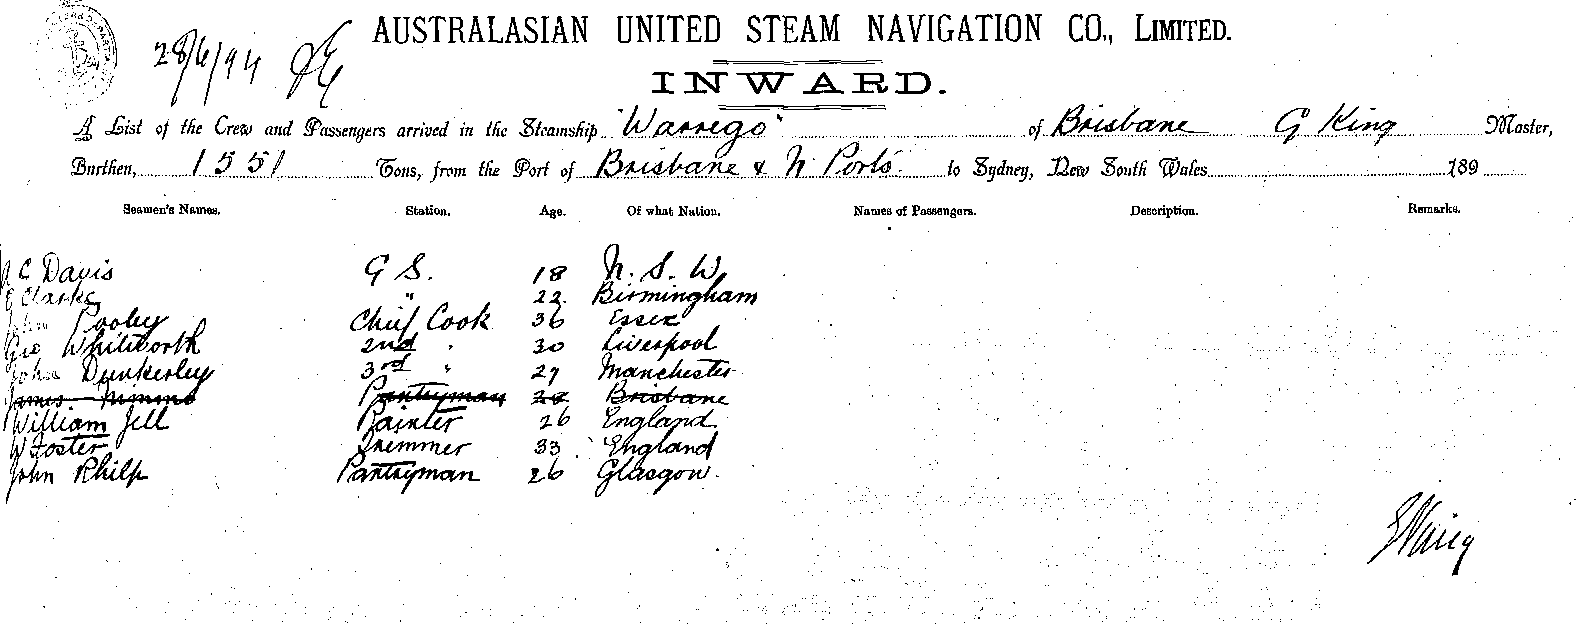 28/6/94
AUSTRALASIAN UNITED STEAM NAVIGATION CO., LIMITED.
INWARD.
A List of the Crew and Passengers arrived in the Steamship "Warrego" of Brisbane G King Master,
Burthen, 1551 Tons, from the Port of Brisbane & N Ports. to Sydney, New South Wales 189
Seamen's Names. Station. Age. Of what Nation. Names of Passengers. Description. Remarks.
C Davis G S. 18 N. S. W
E Clarke " 22. Birmingham
John Pooley Chief Cook 36 Essex
Geo Whitworth 2nd " 30 Liverpool
John Dunkerley 3rd " 27 Manchester
James Nimmo Pantryman 28 Brisbane
William Jell Painter 26 England
W Foster Tremmer 33 England
John Philp Pantryman 26 Glasgow.
G King